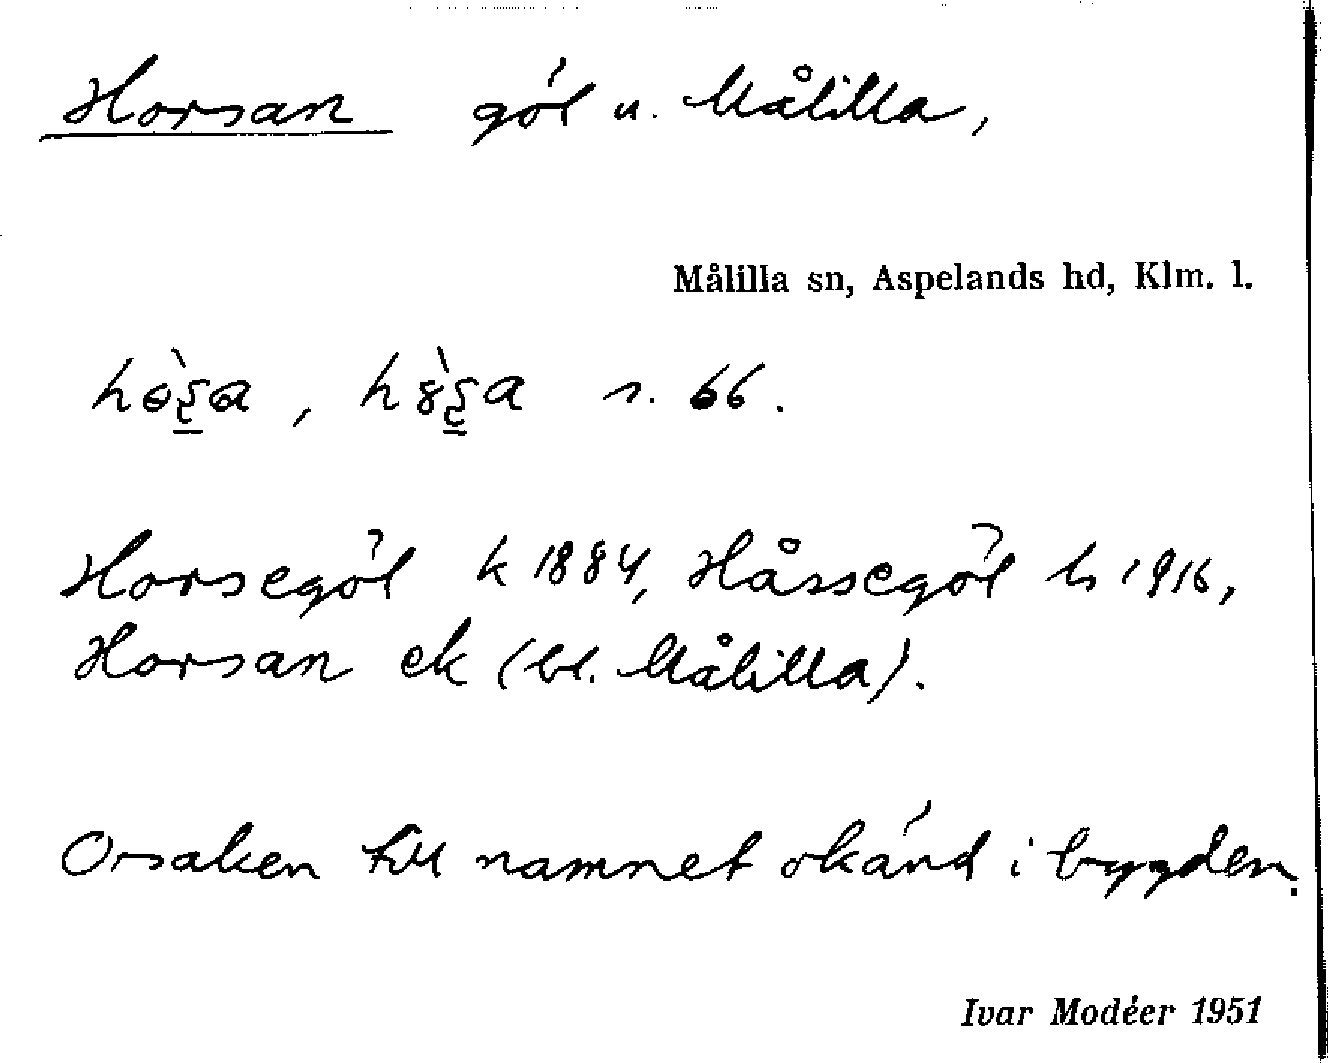 Horsan göl u. Målilla,
Målilla sn, Aspelands hd, Klm. l.
s. 66.
Horsegöl k 1884, Håssegöl h 1916,
Horsan ek (bl. Målilla).
Orsaken till namnet okänd i bygden.
Ivar Modéer 1951